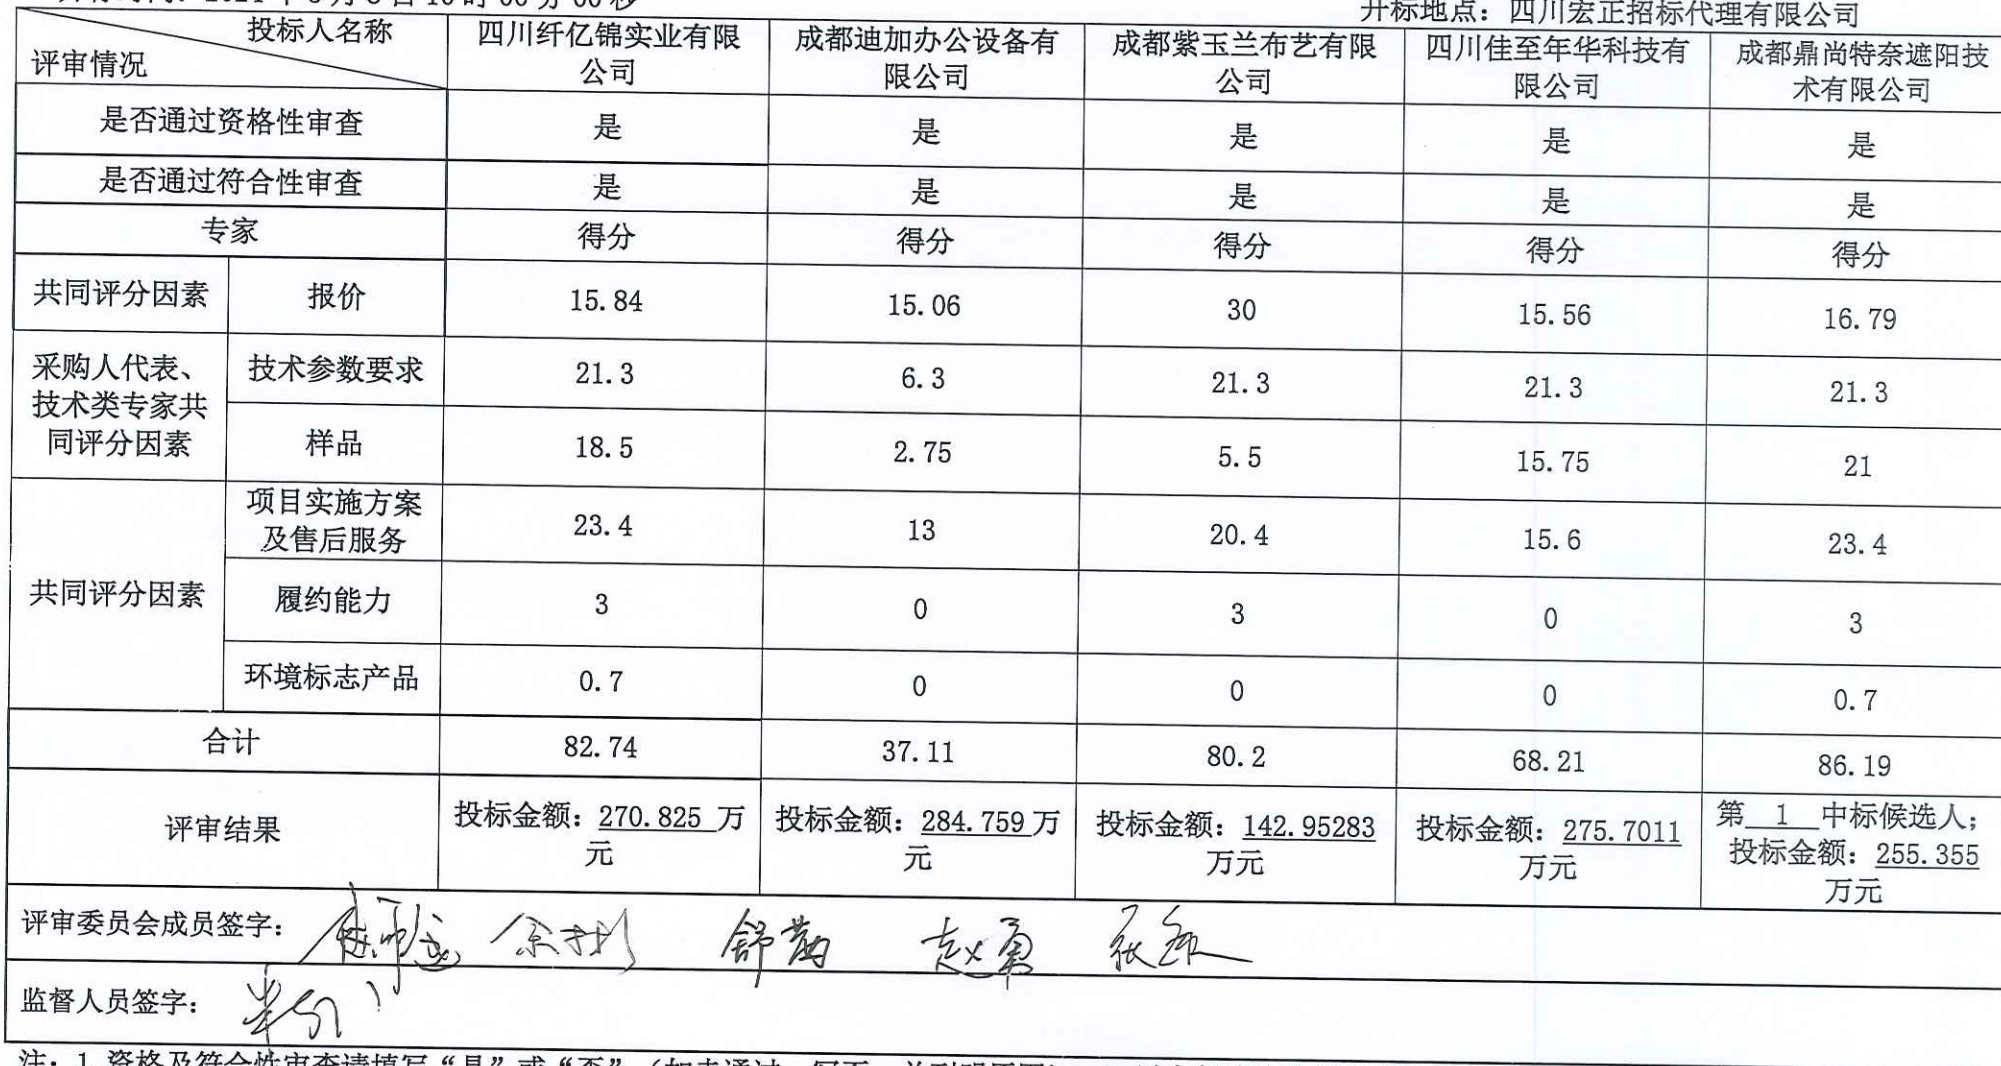 开标地点：四川宏正招标代理有限公司
投标人名称
评审情况
四川纤亿锦实业有限
公司
成都迪加办公设备有
限公司
成都紫玉兰布艺有限
公司
四川佳至年华科技有
限公司
成都鼎尚特奈遮阳技
术有限公司
是否通过资格性审查 是 是 是 是 是
是否通过符合性审查 是 是 是 是 是
专家 得分 得分 得分 得分 得分
共同评分因素 报价 15.84 15.06 30 15.56 16.79
采购人代表、
技术类专家共
同评分因素
技术参数要求 21.3 6.3 21.3 21.3 21.3
样品 18.5 2.75 5.5 15.75 21
共同评分因素
项目实施方案
及售后服务
23.4 13 20.4 15.6 23.4
履约能力 3 0 3 0 3
环境标志产品 0.7 0 0 0 0.7
合计 82.74 37.11 80.2 68.21 86.19
评审结果
投标金额：270.825 万
元
投标金额：284.759 万
元
投标金额：142.95283
万元
投标金额：275.7011
万元
第 1 中标候选人；
投标金额：255.355
万元
评审委员会成员签字： 余彬 赵勇
监督人员签字：